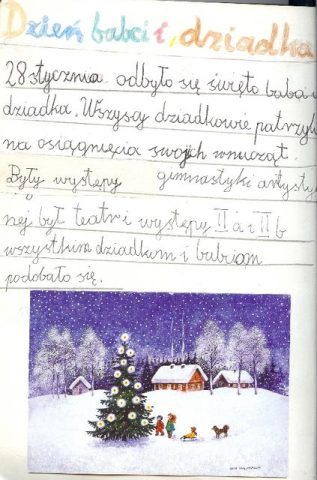 Dzień babci i, dziadka
28 stycznia odbyło się święto baba i
dziadka. Wszyscy dziadkowie patrzyli
na osiągnięcia swojch wnucząt.
Były występy gimnastyki artysty
nej był teatr i występy II a i II b
wszystkim dziadkom i babiom
podobało się.